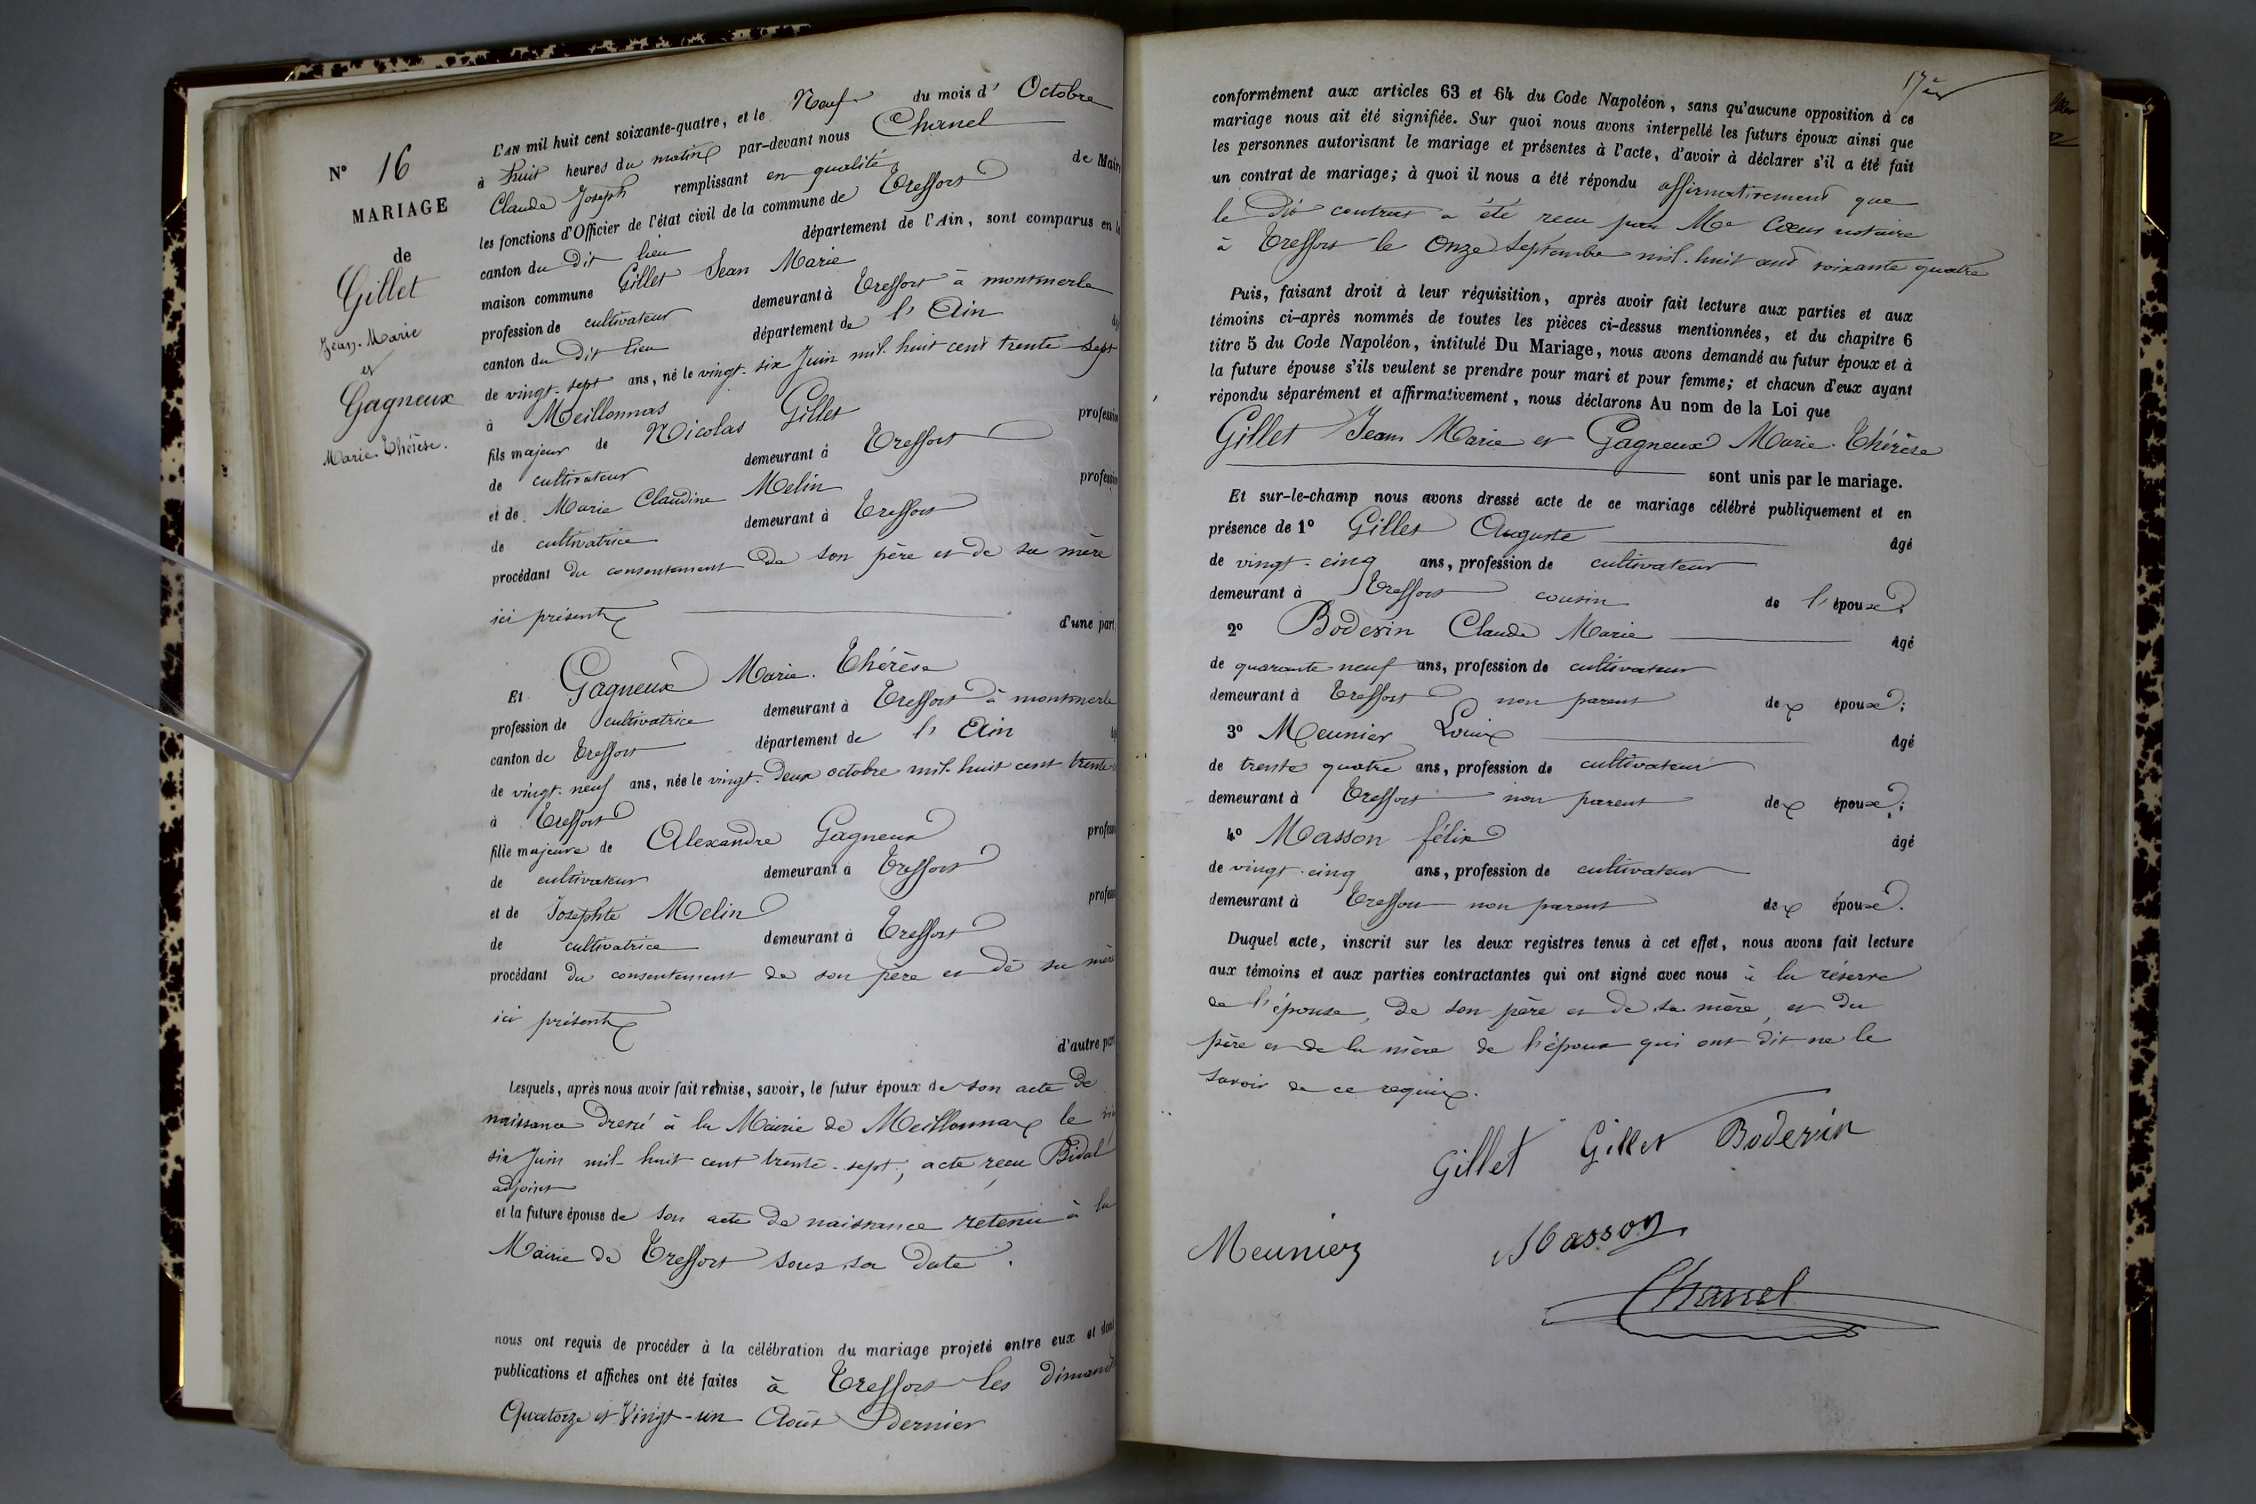 N° 16
MARIAGE
de
Gillet
Jean-Marie
et
Gagneux
Marie-Thérèse.
L'AN mil huit cent soixante-quatre, et le Neuf du mois d' Octobre
à huit heures du matin par-devant nous Chanel
Claude Joseph remplissant en qualité de Maire
les fonctions d'Officier de l'état civil de la commune de Treffort
canton du dit lieu département de l'Ain, sont comparus en la
maison commune Gillet Jean Marie
profession de cultivateur demeurant à Treffort à montmerle
canton du dit lieu département de l'Ain
de vingt-sept ans, né le vingt-six Juin mil-huit cent trente-sept
à Meillonnas
fils majeur de Nicolas Gillet profession
de cultivateur demeurant à Treffort
et de Marie Claudine Melin profession
de cultivatrice demeurant à Treffort
procédant du consentement de son père et de sa mère
ici présents d'une part.
Et Gagneux Marie-Thérèse
profession de cultivatrice demeurant à Treffort à montmerle
canton de Treffort département de l'Ain
de vingt-neuf ans, née le vingt-deux octobre mil-huit cent trente
à Treffort
fille majeure de Alexandre Gagneux profess
de cultivateur demeurant à Treffort
et de Josephte Melin profess
de cultivatrice demeurant à Treffort
procédant du consentement de son père et de sa mère
ici présents
d'autre part
Lesquels, après nous avoir fait remise, savoir, le futur époux de son acte de
naissance dressé à la Mairie de Meillonnas le
six Juin mil-huit cent trente-sept, acte reçu Bidal
adjoint
et la future épouse de son acte de naissance retenu à la
Mairie de Treffort sous sa date.
nous ont requis de procéder à la célébration du mariage projeté entre eux et dont
publications et affiches ont été faites à Treffort les dimanch
Quatorze et Vingt-un Août dernier
17
conformément aux articles 63 et 64 du Code Napoléon, sans qu'aucune opposition à ce
mariage nous ait été signifiée. Sur quoi nous avons interpellé les futurs époux ainsi que
les personnes autorisant le mariage et présentes à l'acte, d'avoir à déclarer s'il a été fait
un contrat de mariage; à quoi il nous a été répondu affirmativement que
le dit contrat a été reçu par Me Cœur notaire
à Treffort le Onze Septembre mil-huit cent soixante quatre
Puis, faisant droit à leur réquisition, après avoir fait lecture aux parties et aux
témoins ci-après nommés de toutes les pièces ci-dessus mentionnées, et du chapitre 6
titre 5 du Code Napoléon, intitulé Du Mariage, nous avons demandé au futur époux et à
la future épouse s'ils veulent se prendre pour mari et pour femme; et chacun d'eux ayant
répondu séparément et affirmativement, nous déclarons Au nom de la Loi que
Gillet Jean Marie et Gagneux Marie-Thérèse
sont unis par le mariage.
Et sur-le-champ nous avons dressé acte de ce mariage célébré publiquement et en
présence de 1° Gillet Auguste âgé
de vingt-cinq ans, profession de cultivateur
demeurant à Treffort cousin de l'époux;
2° Boderin Claude Marie âgé
de quarante neuf ans, profession de cultivateur
demeurant à Treffort non parent des époux;
3° Meunier Louis âgé
de trente quatre ans, profession de cultivateur
demeurant à Treffort non parent des époux;
4° Masson félix âgé
de vingt-cinq ans, profession de cultivateur
demeurant à Treffort non parent des époux.
Duquel acte, inscrit sur les deux registres tenus à cet effet, nous avons fait lecture
aux témoins et aux parties contractantes qui ont signé avec nous à la réserve
de l'épouse, de son père et de sa mère, et du
père et de la mère de l'époux qui ont dit ne le
savoir de ce requis.
Gillet Gillet Boderin
Meunier Masson
Chanel